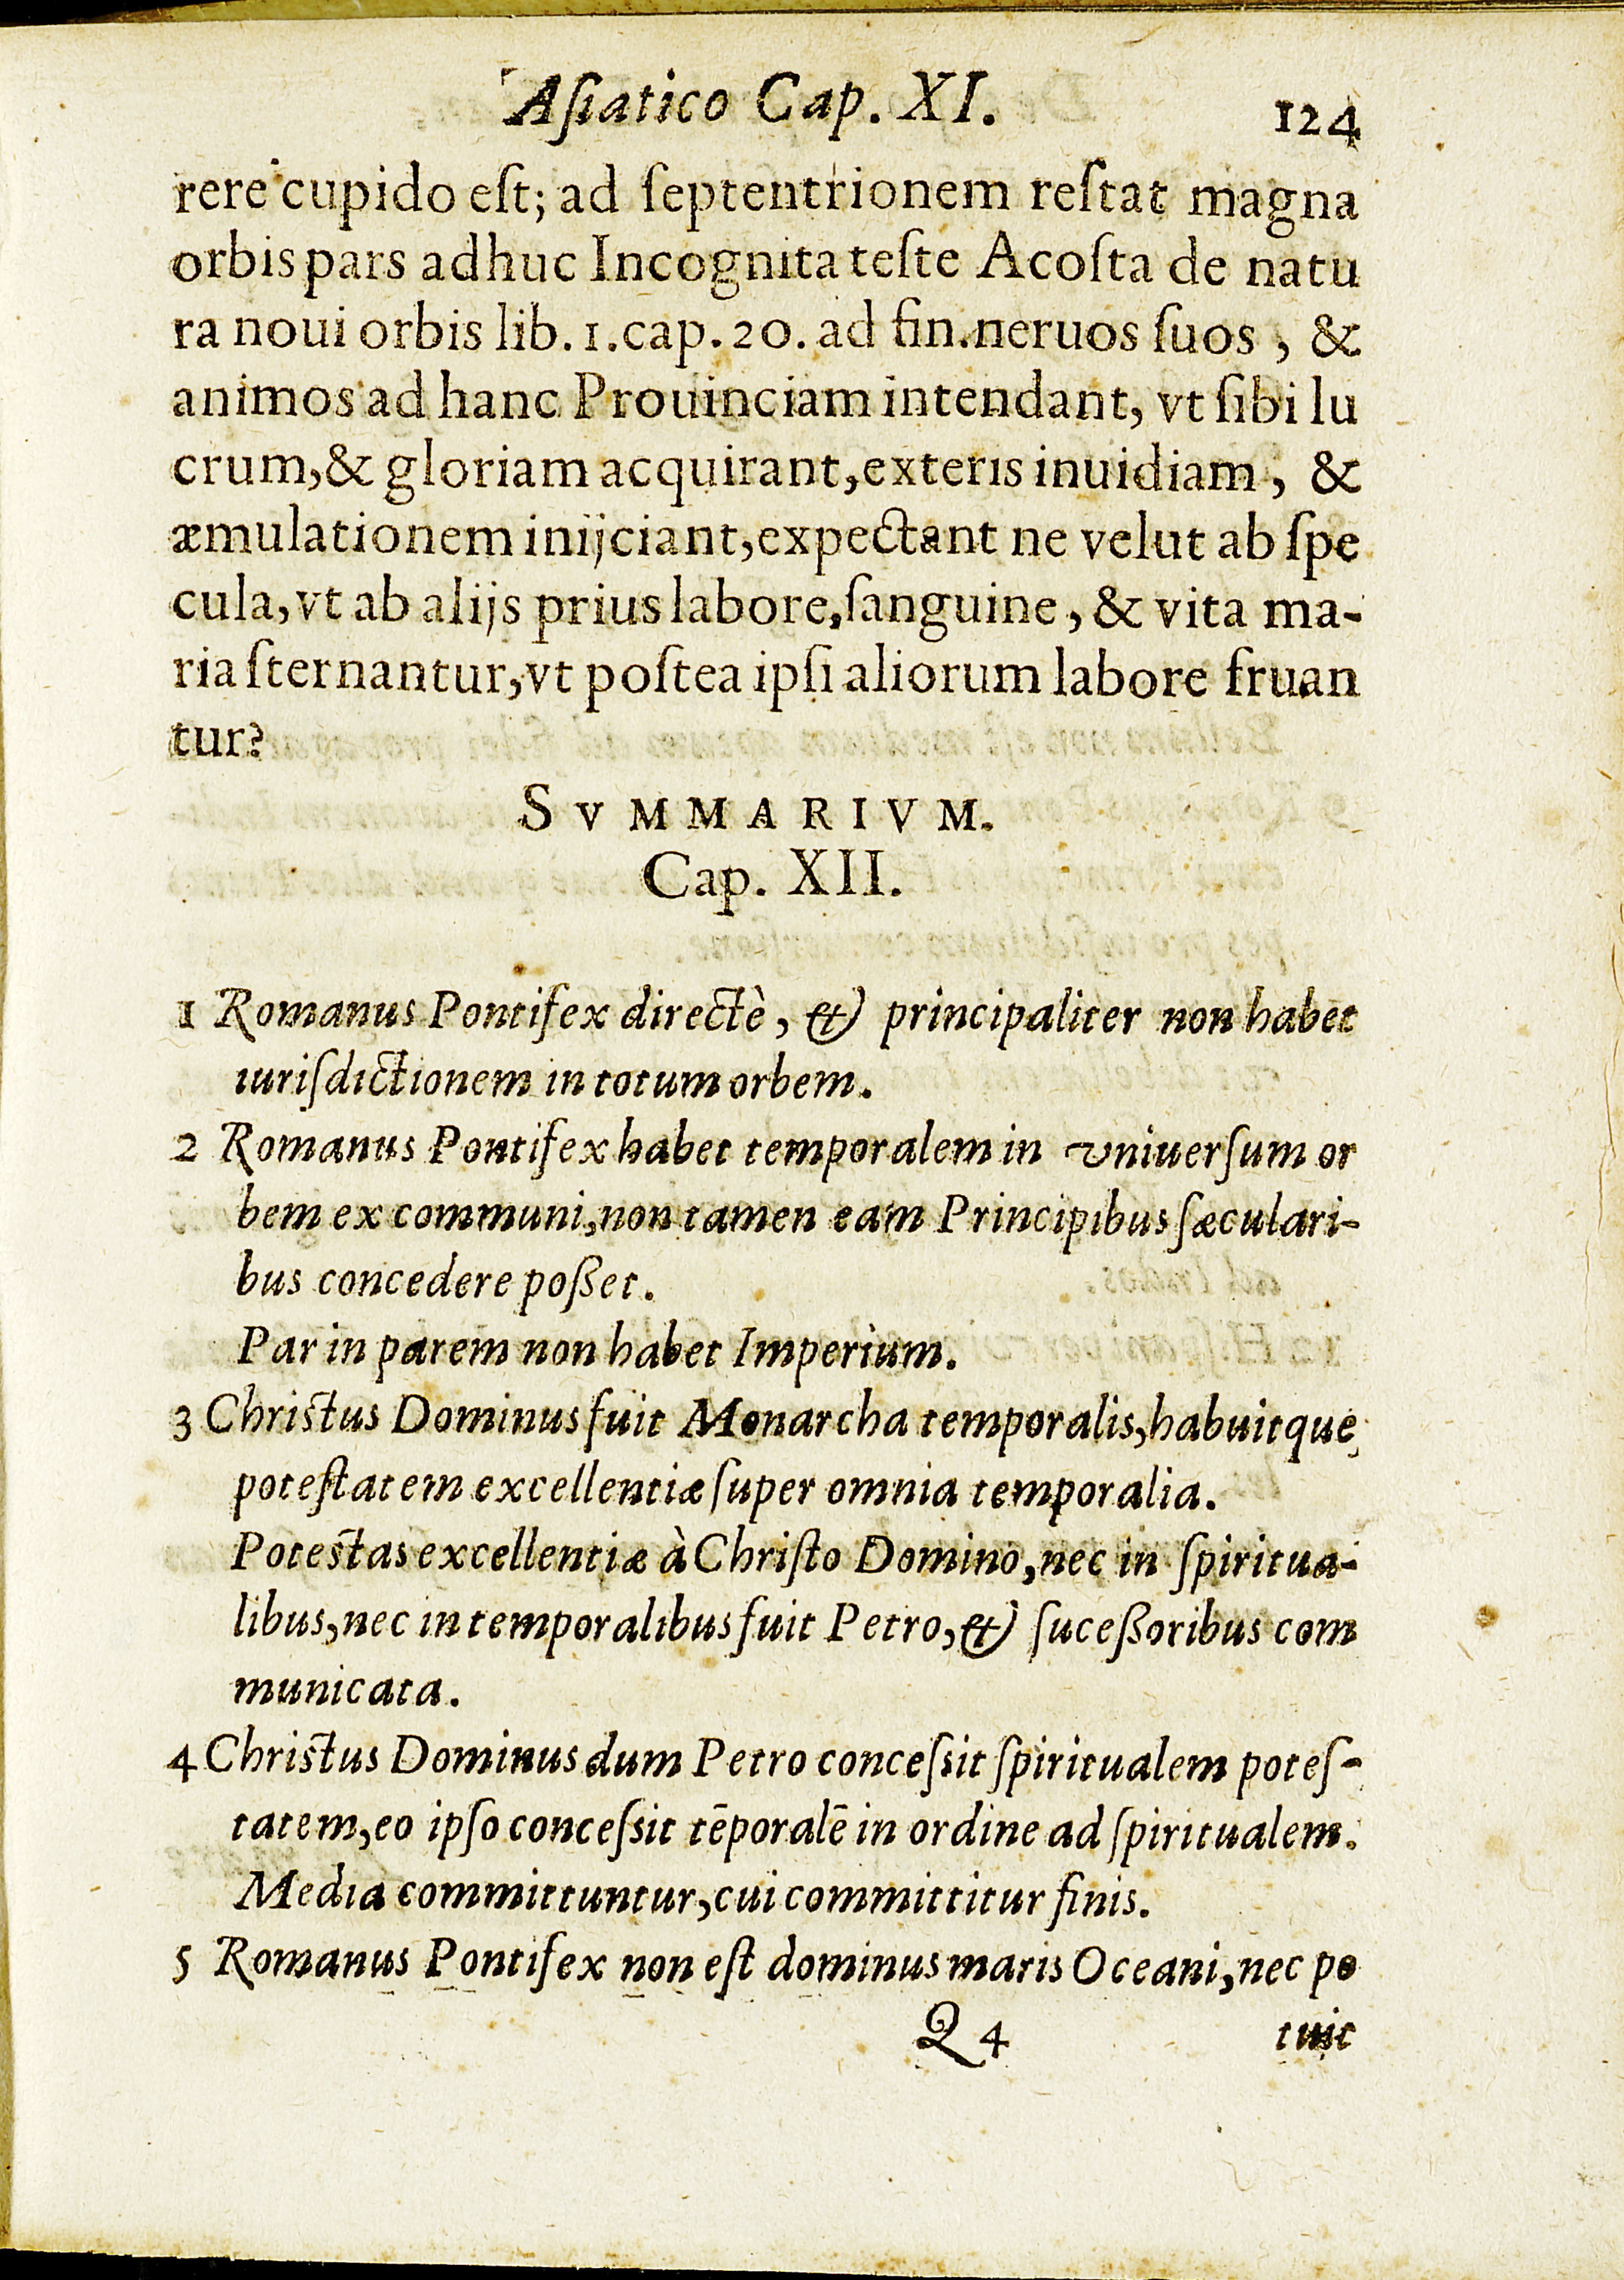 Aſiatico Cap. XI. 124
rere cupido eſt; ad ſeptentrionem reſtat magna
orbis pars adhuc Incognita teſte Acoſta de natu
ra noui orbis lib. 1. cap. 20. ad fin. neruos ſuos, &
animos ad hanc Prouinciam intendant, vt ſibi lu
crum, & gloriam acquirant, exteris inuidiam, &
æmulationem inijciant, expectant ne velut ab ſpe
cula, vt ab alijs prius labore, ſanguine, & vita ma-
ria ſternantur, vt poſtea ipſi aliorum labore fruan
tur?
SVMMARIVM.
Cap. XII.
1 Romanus Pontifex directè, & principaliter non habet
iuriſdictionem in totum orbem.
2 Romanus Pontifex habet temporalem in vniuerſum or
bem ex communi, non tamen eam Principibus ſæculari-
bus concedere poßet.
Par in parem non habet Imperium.
3 Chriſtus Dominus fuit Monarcha temporalis, habuitque
poteſtatem excellentiæ ſuper omnia temporalia.
Poteſtas excellentiæ à Chriſto Domino, nec in ſpiritua-
libus, nec in temporalibus fuit Petro, & ſuceßoribus com
municata.
4 Chriſtus Dominus dum Petro conceſsit ſpiritualem poteſ-
tatem, eo ipſo conceſsit tēporalē in ordine ad ſpiritualem.
Media committuntur, cui committitur finis.
5 Romanus Pontifex non eſt dominus maris Oceani, nec po
Q 4 tuit